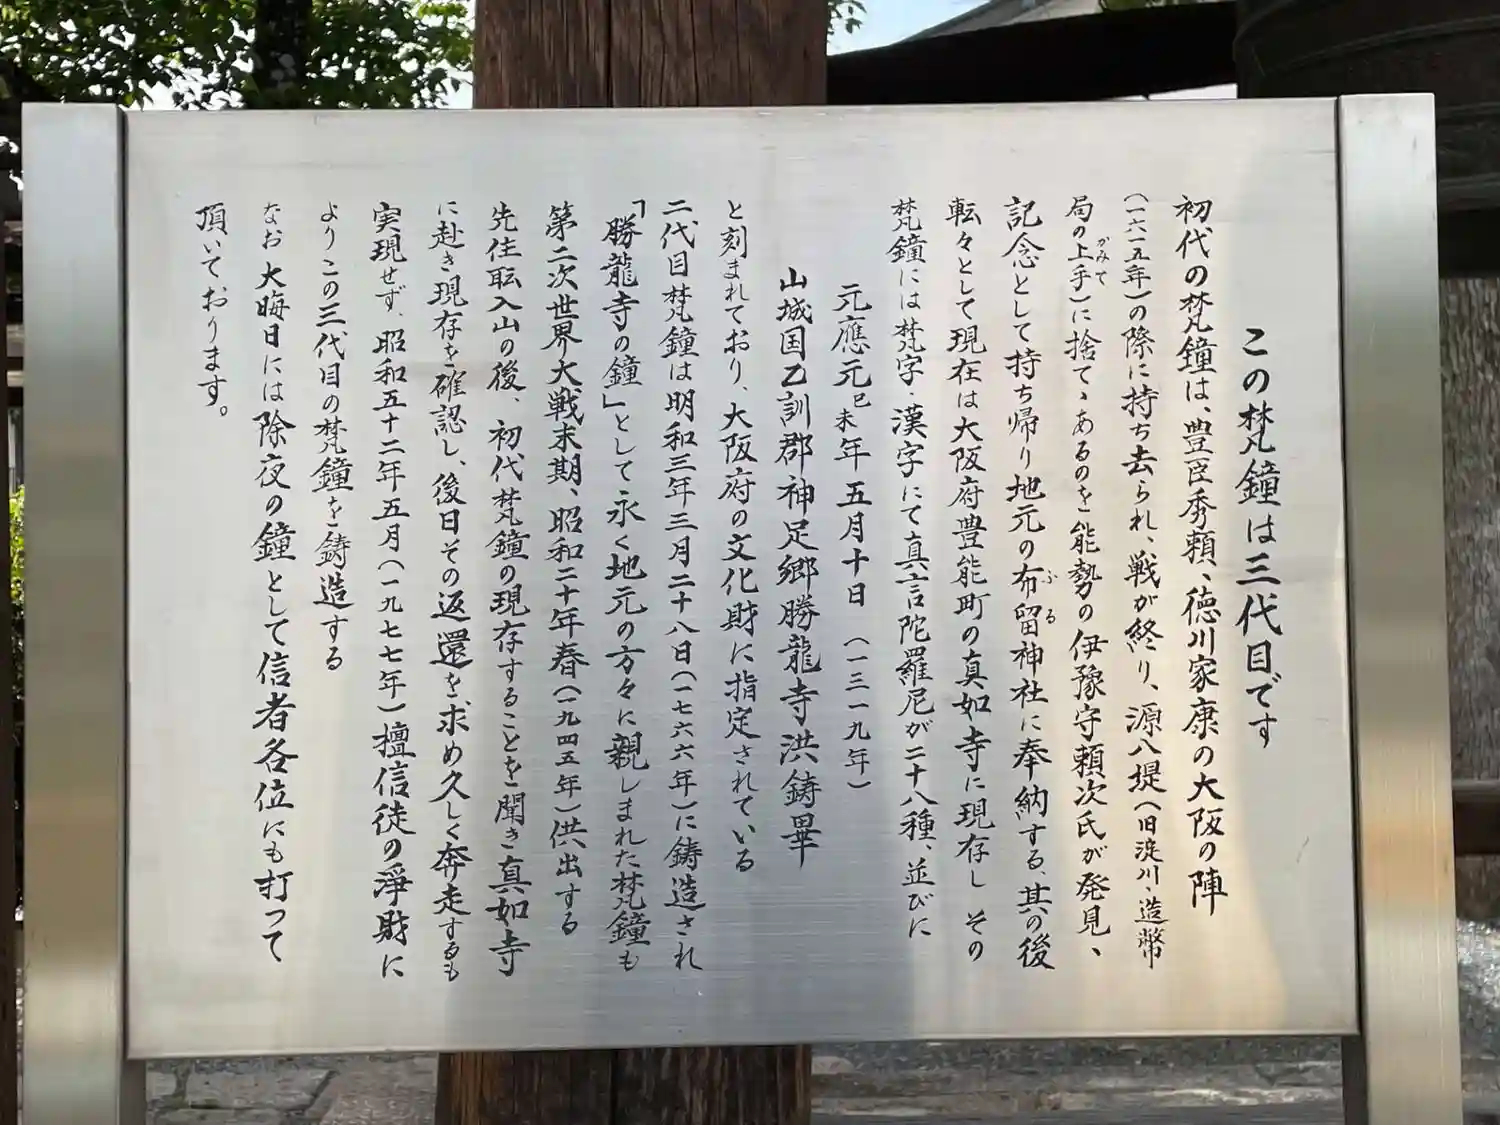 この梵鐘は三代目です
初代の梵鐘は、豊臣秀頼、徳川家康の大阪の陣
(一六一五年)の際に持ち去られ、戦が終り、源八堤(旧淀川・造幣
局の上手)に捨てゝあるのを能勢の伊豫守頼次氏が発見、
がみて
記念として持ち帰り地元の布留神社に奉納する、其の後
ふる
転々として現在は大阪府豊能町の真如寺に現存し その
梵鐘には梵字・漢字にて真言陀羅尼が二十八種、並びに
元應元己未年五月十日 (一三一九年)
山城国乙訓郡神足郷勝龍寺洪鋳畢
と刻まれており、大阪府の文化財に指定されている
二代目梵鐘は明和三年三月二十八日(一七六六年)に鋳造され
「勝龍寺の鐘」として永く地元の方々に親しまれた梵鐘も
第二次世界大戦末期、昭和二十年春(一九四五年)供出する
先住耘入山の後、初代梵鐘の現存することを聞き真如寺
に赴き現存を確認し、後日その返還を求め久しく奔走するも
実現せず、昭和五十二年五月(一九七七年)檀信徒の淨財に
よりこの三代目の梵鐘を鋳造する
なお大晦日には除夜の鐘として信者各位にも打って
頂いております。